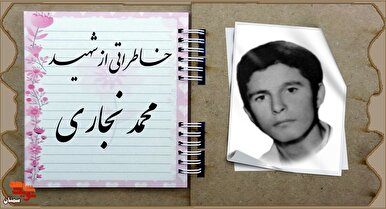 خاطراتی از شهید
محمد نجاری
سمنان